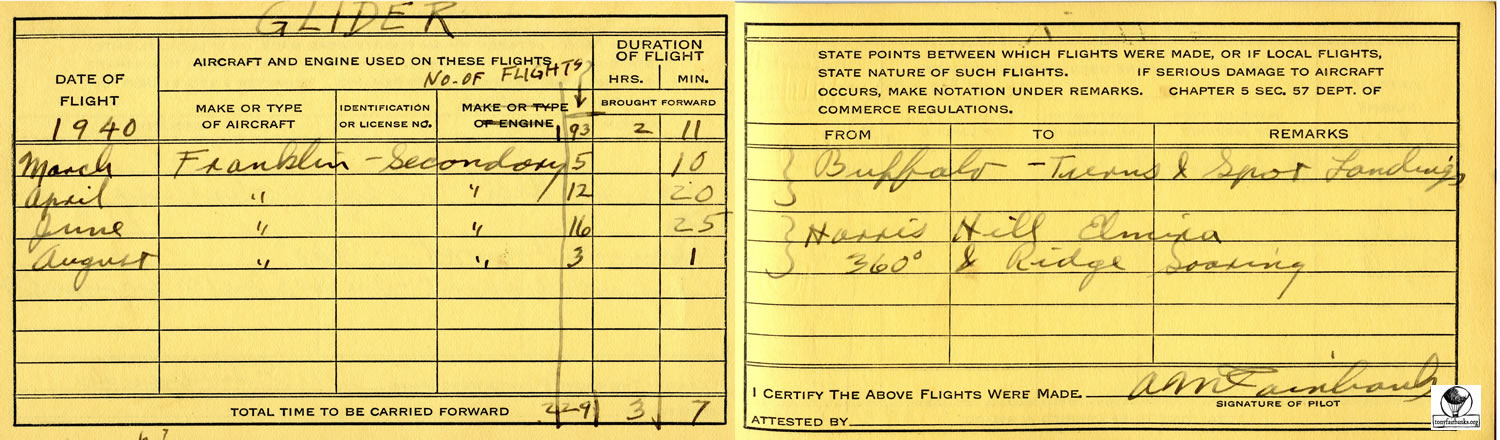 GLIDER
DATE OF FLIGHT
1940
AIRCRAFT AND ENGINE USED ON THESE FLIGHTS
NO. OF FLIGHTS
MAKE OR TYPE OF AIRCRAFT
IDENTIFICATION OR LICENSE NO.
MAKE OR TYPE OF ENGINE
DURATION OF FLIGHT
HRS. MIN.
BROUGHT FORWARD
193 2 11
March Franklin - Secondary 5 10
April " " 12 20
June " " 16 25
August " " 3 1
TOTAL TIME TO BE CARRIED FORWARD 229 3 7
STATE POINTS BETWEEN WHICH FLIGHTS WERE MADE, OR IF LOCAL FLIGHTS,
STATE NATURE OF SUCH FLIGHTS. IF SERIOUS DAMAGE TO AIRCRAFT
OCCURS, MAKE NOTATION UNDER REMARKS. CHAPTER 5 SEC. 57 DEPT. OF
COMMERCE REGULATIONS.
FROM TO REMARKS
Buffalo - Turns & Spot Landings
Harris Hill Elmira
360° & Ridge Soaring
I CERTIFY THE ABOVE FLIGHTS WERE MADE. A M Fairbanks
SIGNATURE OF PILOT
ATTESTED BY
tonyfairbanks.org